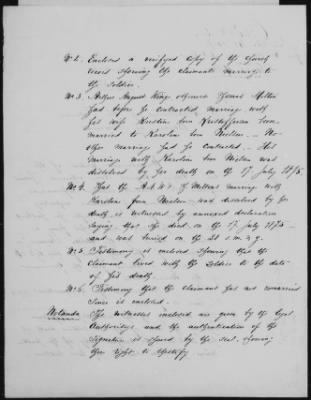 No 2. Enclosed a verified copy of the church
record showing the claimants marriage to
the soldier.
No 3. August King
had before he contracted marriage with
his wife born
married to Karoline born Nielsen. No
other marriage had he contracted. His
marriage with Karoline born Nielsen was
dissolved by her death on the 17 July 1875.
No 4. That the marriage with
Karoline born Nielsen was dissolved by her
death is witnessed by annexed declaration
saying that she died on the 17 July 1875
and was buried on the 21 s. m. & y.
No 5. Testimony is enclosed showing that the
claimant lived with the soldier to the date
of his death.
No 6. Testimony that the claimant has not remarried
since is enclosed.
Notanda. The witnesses enclosed are given by the legal
Authoritys and the authentication of the
signature is showed by the seal, showing
their right to testify